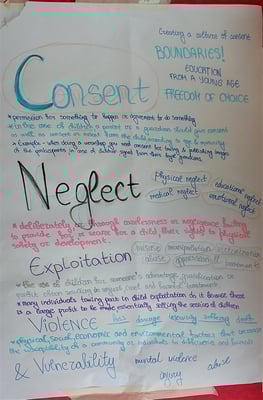 Creating a culture of consent
BOUNDARIES!
EDUCATION
FROM A YOUNG AGE
FREEDOM OF CHOICE
Consent
*permission for something to happen or agreement to do something
*in the case of children a parent or a guardian should give consent
as well as consent or assent from the child according to age & maturity
*Example - when doing a workshop you need consent for taking & publishing images
of the participants in case of children signed from their legal guardians.
Neglect
Physical neglect
educational neglect
medical neglect
emotional neglect
*deliberately or through carelessness or negligence failing
to provide for, or secure for a child, their right to physical
safety or development.
misuse manipulation victimization
abuse oppression
Exploitation
*the use of children for someone's advantage, gratification or
profit often resulting in unjust, cruel and harmful treatment.
*many individuals taking part in child exploitation do it because there
is a large profit to be made essentially selling the services of children
Violence
damage suffering death
*physical, social, economic and environmental factors that increase
the susceptibility of a community or individuals to difficulties and hazards
& Vulnerability
mental violence
injury
abuse